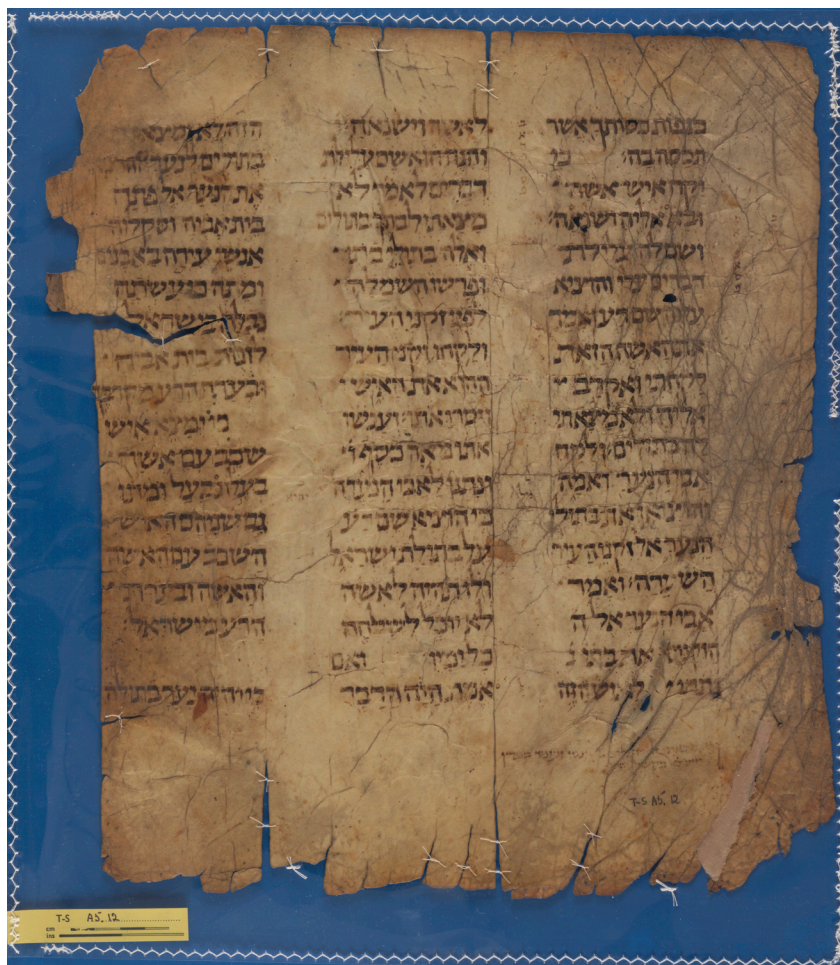 כנפות כסותך אשר
תכסה בה כי
יקח איש אשה
ובא אליה ושנאה
ושם לה עלילת
דברים והוציא
עליה שם רע ואמר
את האשה הזאת
לקחתי ואקרב
אליה ולא מצאתי
לה בתולים ולקח
אבי הנער ואמה
והוציאו את בתולי
הנער אל זקני העיר
השערה ואמר
אבי הנער אל ה
הזקנים את בתי נ
נתתי לאיש הזה
לאשה וישנאה
והנה הוא שם עלילת
דברים לאמר לא
מצאתי לבתך בתולים
ואלה בתולי בתי
ופרשו השמלה
לפני זקני העיר
ולקחו זקני העיר
ההוא את האיש
ויסרו אתו וענשו
אתו מאה כסף ו
ונתנו לאבי הנערה
כי הוציא שם רע
על בתולת ישראל
ולו תהיה לאשה
לא יוכל לשלחה
כל ימיו ואם
אמת היה הדבר
הזה לא נמצאו
בתולים לנער
את הנער אל פתח
בית אביה וסקלוה
אנשי עירה באבנים
ומתה כי עשתה
נבלה בישראל
לזנות בית אביה
ובערת הרע מקרבך
כי ימצא איש
שכב עם אשה
בעלת בעל ומתו
גם שניהם האיש
השכב עם האשה
והאשה ובערת
הרע מישראל
כי יהיה נער בתולה
T-S A5.12
T-S A5.12
cm
ins